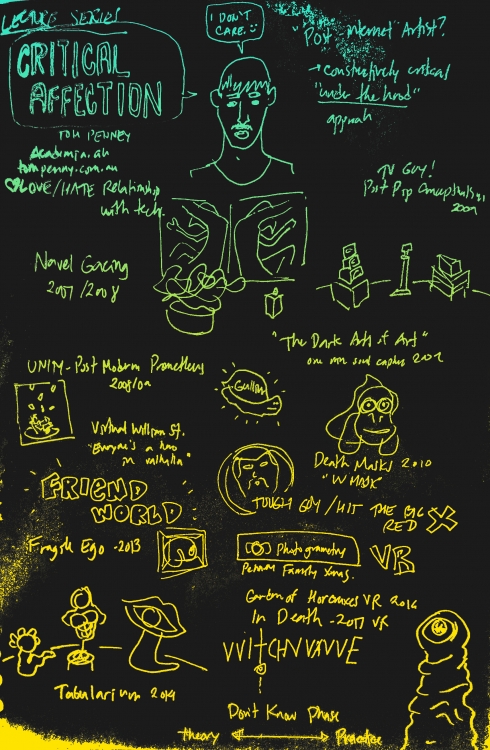 LECTURE SERIES
I DON'T
CARE. :)
CRITICAL
AFFECTION
"Post internet" Artist?
→ constructively critical
"under the hood"
TOM PENNEY
Academia.
tompenny.com.au
LOVE/HATE Relationship
with tech.
TV GUY!
Post Pop Conceptualism
2009
Navel Gazing
2007/2008
"The Dark Arts of Art"
2009
UNIM - Post Modern Prometheus
2008/09
Virtual William St.
"Everyone's a hero
in valhalla"
Death Masks 2010
FRIEND
WORLD
TOUGH GUY / HIT THE BIG
RED X
Fragile Ego - 2013
Photogrammetry
VR
Penney Family Xmas.
Garden of Horcruxes VR 2016
In Death - 2017 VR
VVITCHVVAVVE
Tabularium 2014
Don't Know Phase
Theory
Practice